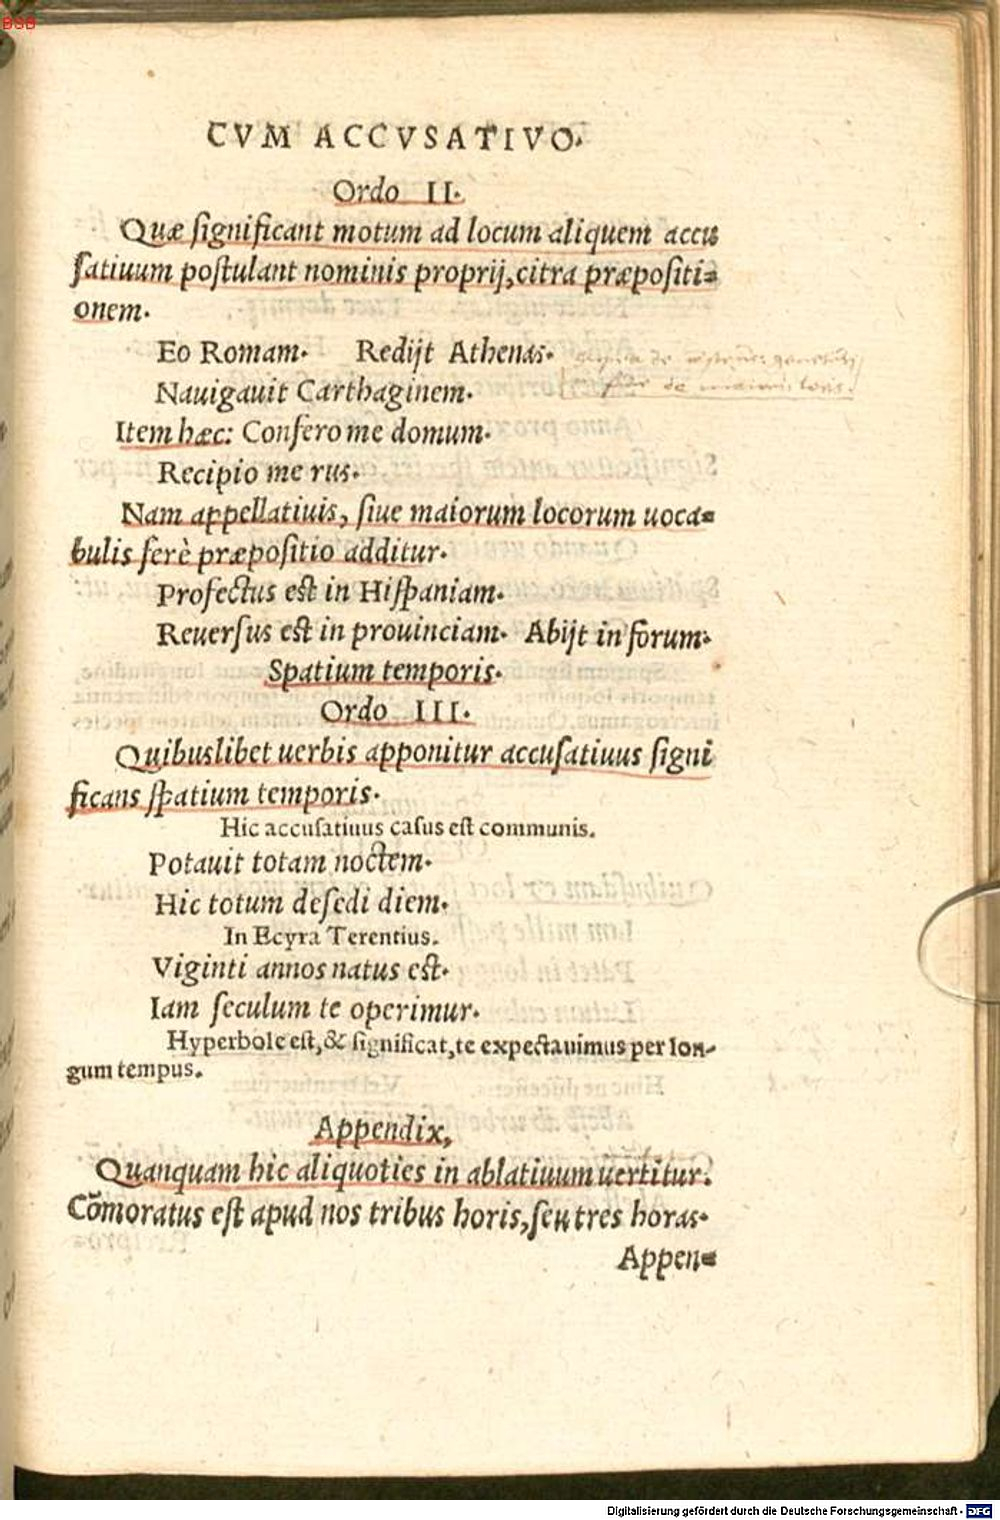 BSB
CVM ACCVSATIVO.
Ordo II.
Quæ ſignificant motum ad locum aliquem accu
ſatiuum poſtulant nominis proprij, citra præpoſiti-
onem.
Eo Romam. Redijt Athenas.
Nauigauit Carthaginem.
Item hæc: Confero me domum.
Recipio me rus.
Nam appellatiuis, ſiue maiorum locorum uoca-
bulis ferè præpoſitio additur.
Profectus eſt in Hiſpaniam.
Reuerſus eſt in prouinciam. Abijt in forum.
Spatium temporis.
Ordo III.
Quibuslibet uerbis apponitur accuſatiuus ſigni
ficans ſpatium temporis.
Hic accuſatiuus caſus eſt communis.
Potauit totam noctem.
Hic totum deſedi diem.
In Ecyra Terentius.
Viginti annos natus eſt.
Iam ſeculum te operimur.
Hyperbole eſt, & ſignificat, te expectauimus per lon-
gum tempus.
Appendix,
Quanquam hic aliquoties in ablatiuum uertitur.
Cōmoratus eſt apud nos tribus horis, ſeu tres horas.
Appen-
Digitalisierung gefördert durch die Deutsche Forschungsgemeinschaft - DFG